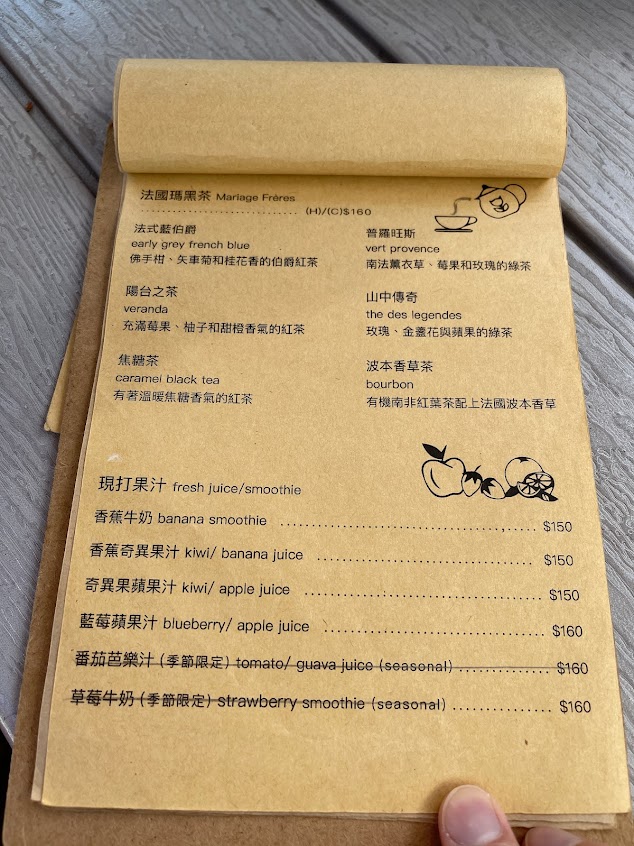 法國瑪黑茶 Mariage Frères
.............................. (H)/(C)$160
法式藍伯爵
early grey french blue
佛手柑、矢車菊和桂花香的伯爵紅茶
普羅旺斯
vert provence
南法薰衣草、莓果和玫瑰的綠茶
陽台之茶
veranda
充滿莓果、柚子和甜橙香氣的紅茶
山中傳奇
the des legendes
玫瑰、金盞花與蘋果的綠茶
焦糖茶
caramel black tea
有著溫暖焦糖香氣的紅茶
波本香草茶
bourbon
有機南非紅葉茶配上法國波本香草
現打果汁 fresh juice/smoothie
香蕉牛奶 banana smoothie ........................................ $150
香蕉奇異果汁 kiwi/ banana juice .................................. $150
奇異果蘋果汁 kiwi/ apple juice .................................... $150
藍莓蘋果汁 blueberry/ apple juice ................................ $160
番茄芭樂汁 (季節限定) tomato/ guava juice (seasonal) .............. $160
草莓牛奶 (季節限定) strawberry smoothie (seasonal) ............... $160